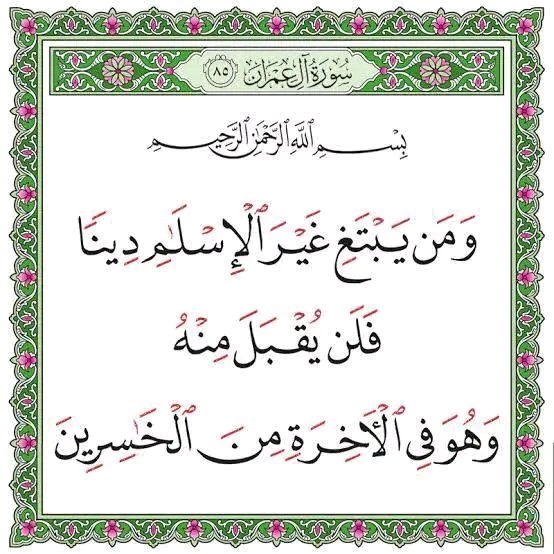 سُورَةُ آلِ عِمْرَان ٨٥
بِسْمِ اللَّهِ الرَّحْمَنِ الرَّحِيمِ
وَمَن يَبْتَغِ غَيْرَ ٱلْإِسْلَٰمِ دِينًا
فَلَن يُقْبَلَ مِنْهُ
وَهُوَ فِى ٱلْأَخِرَةِ مِنَ ٱلْخَٰسِرِينَ